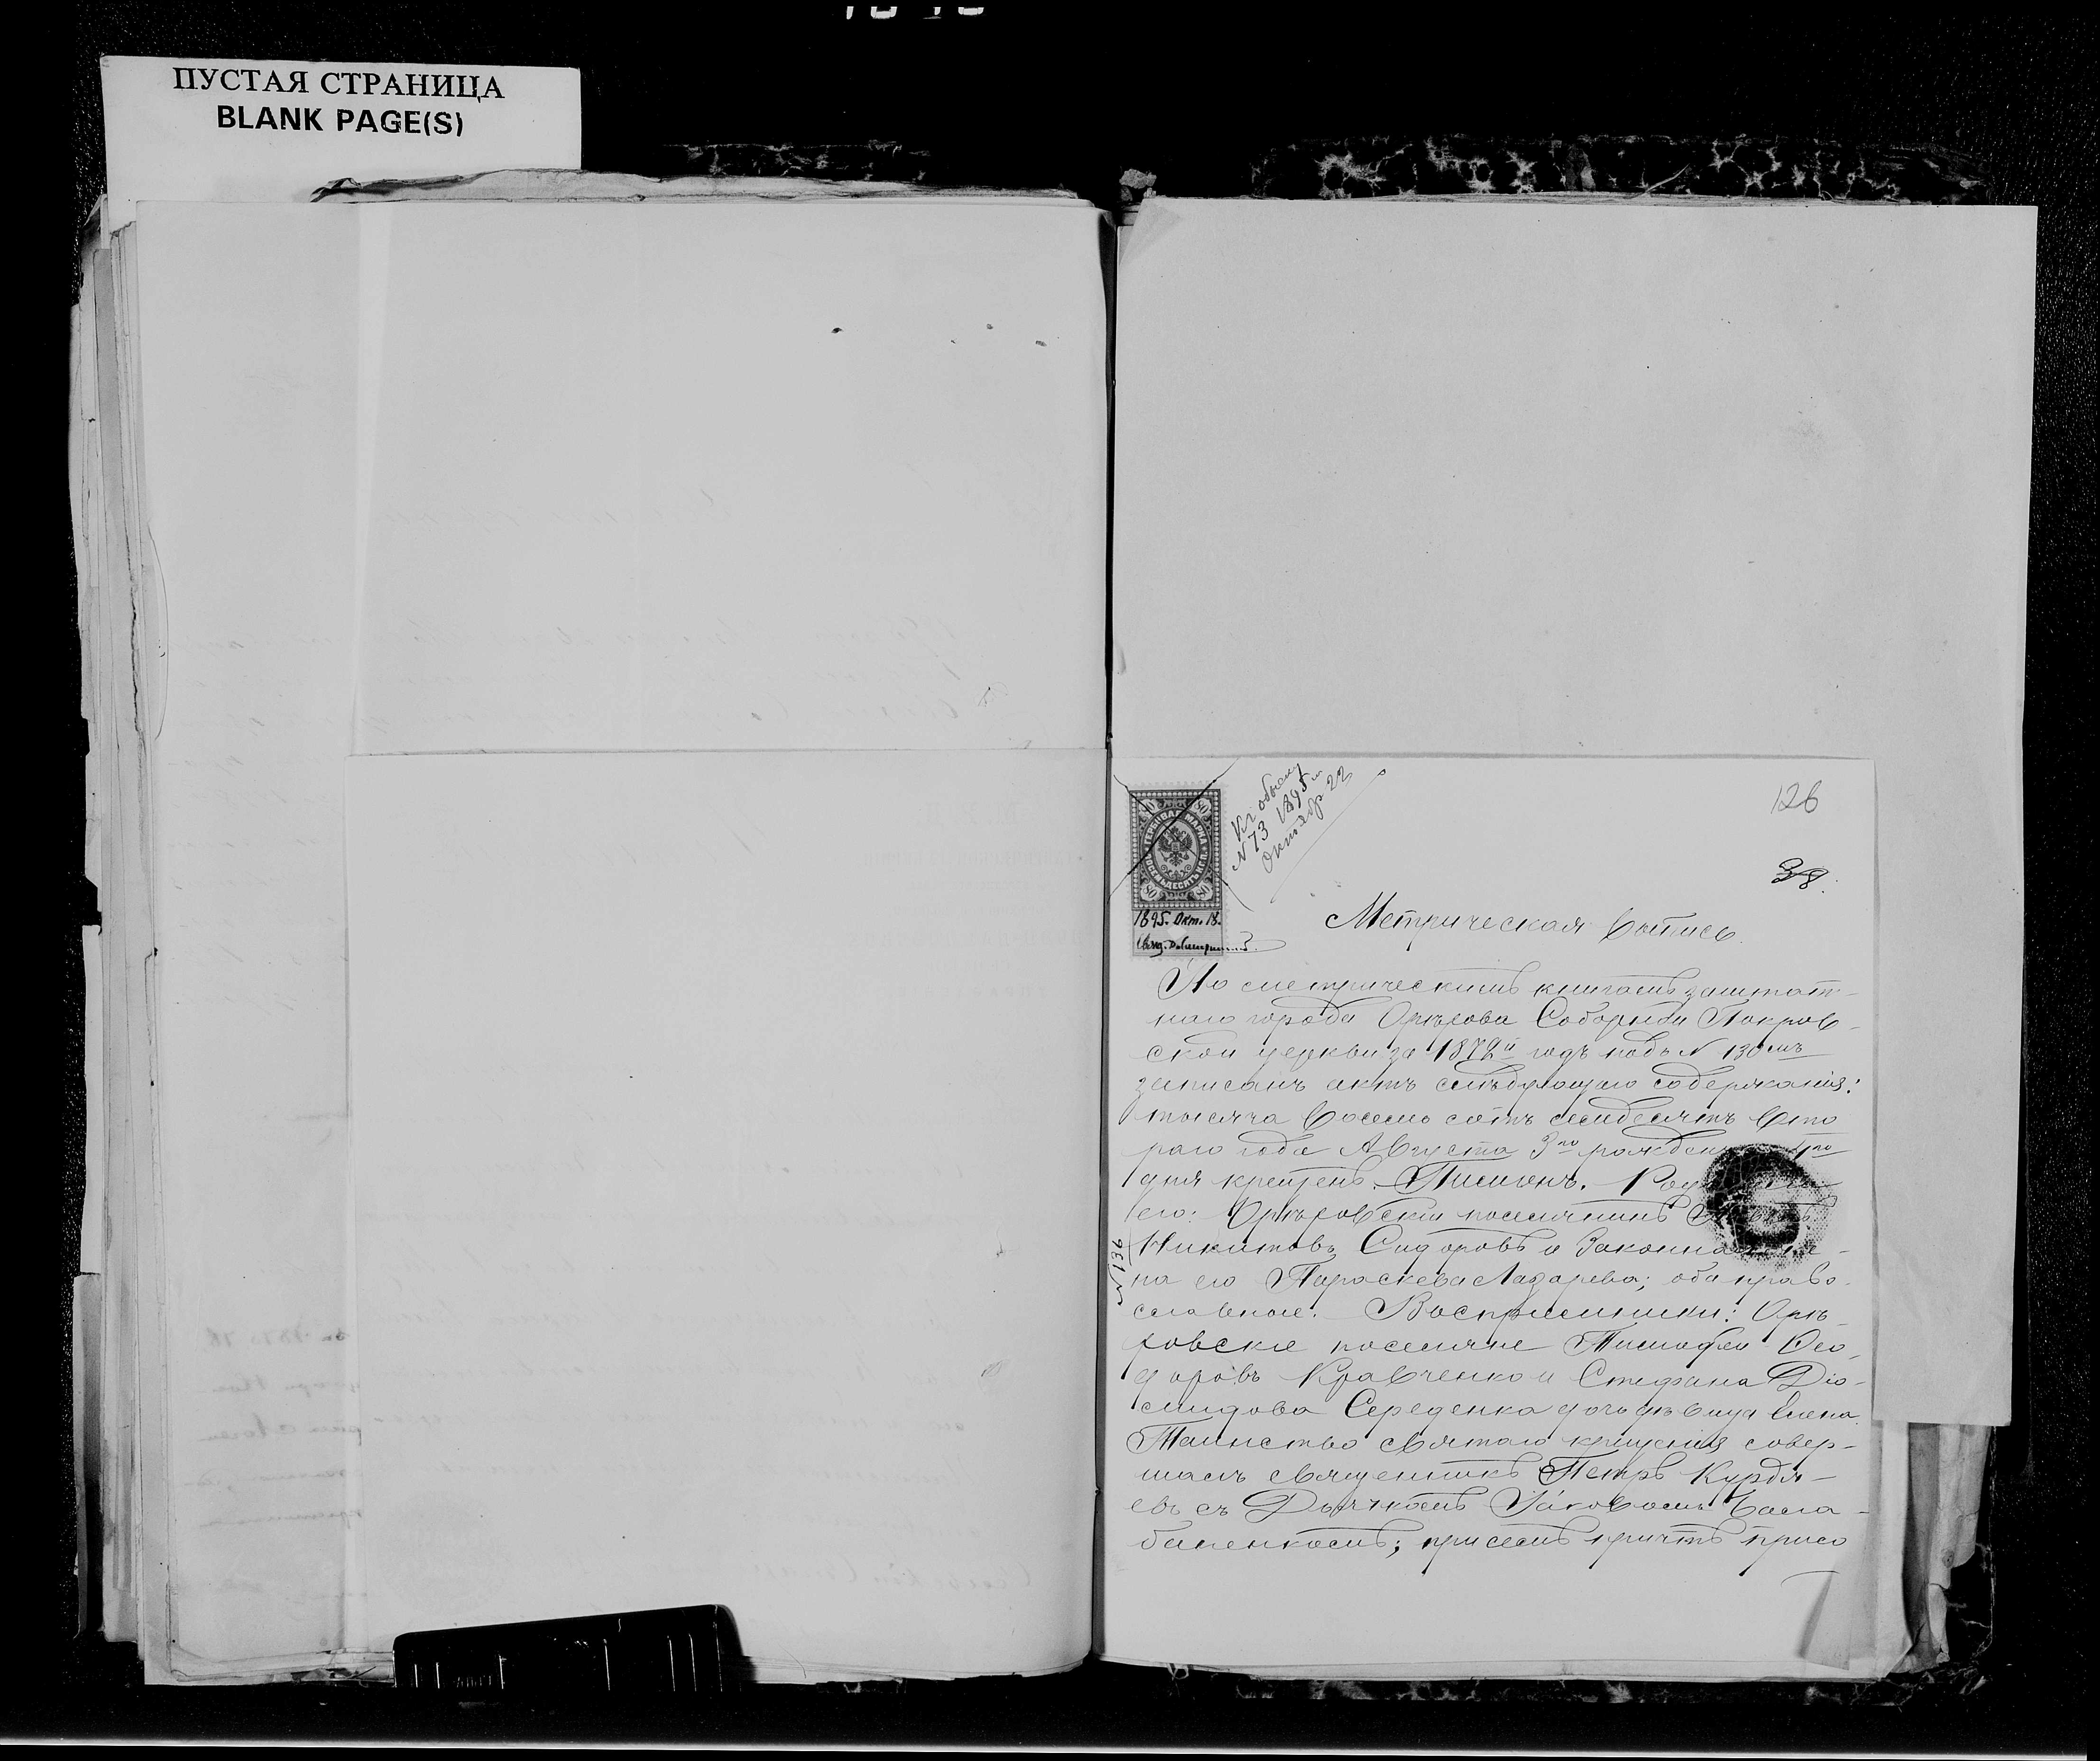 ПУСТАЯ СТРАНИЦА
BLANK PAGE(S)
Къ обыску
N 73 1895
Октябр 22
126
38.
80 80
ГЕРБОВАЯ МАРКА
ВОСЕМЬДЕСЯТЪ КОП.
80 80
1895. Окт. 18.
Метрическая выпись
По метрическимъ книгамъ заштат-
наго города Орѣхова Соборной Покров-
ской церкви за 1872й годъ подъ N 130мъ
записанъ актъ слѣдующаго содержанія:
тысяча восемь сотъ семдесятъ вто
раго года Августа 3го рожденъ 4го
дня крещенъ Пимонъ.
его: Орѣховскій поселянинъ
Никитовъ Сидоровъ и законная же-
на его Параскева Лазарева; оба право-
славные. Воспріемники: Орѣ-
ховскіе поселяне Тимофей Ѳео-
доровъ Кравченко и Стефана Діо-
мидова Середенка дочь дѣвица Елена.
Таинство святаго крещенія совер-
шалъ священникъ Петръ Курдя-
евъ съ Дьячкомъ Іаковомъ Бала-
баненкомъ; при семъ причтъ присо
N 136